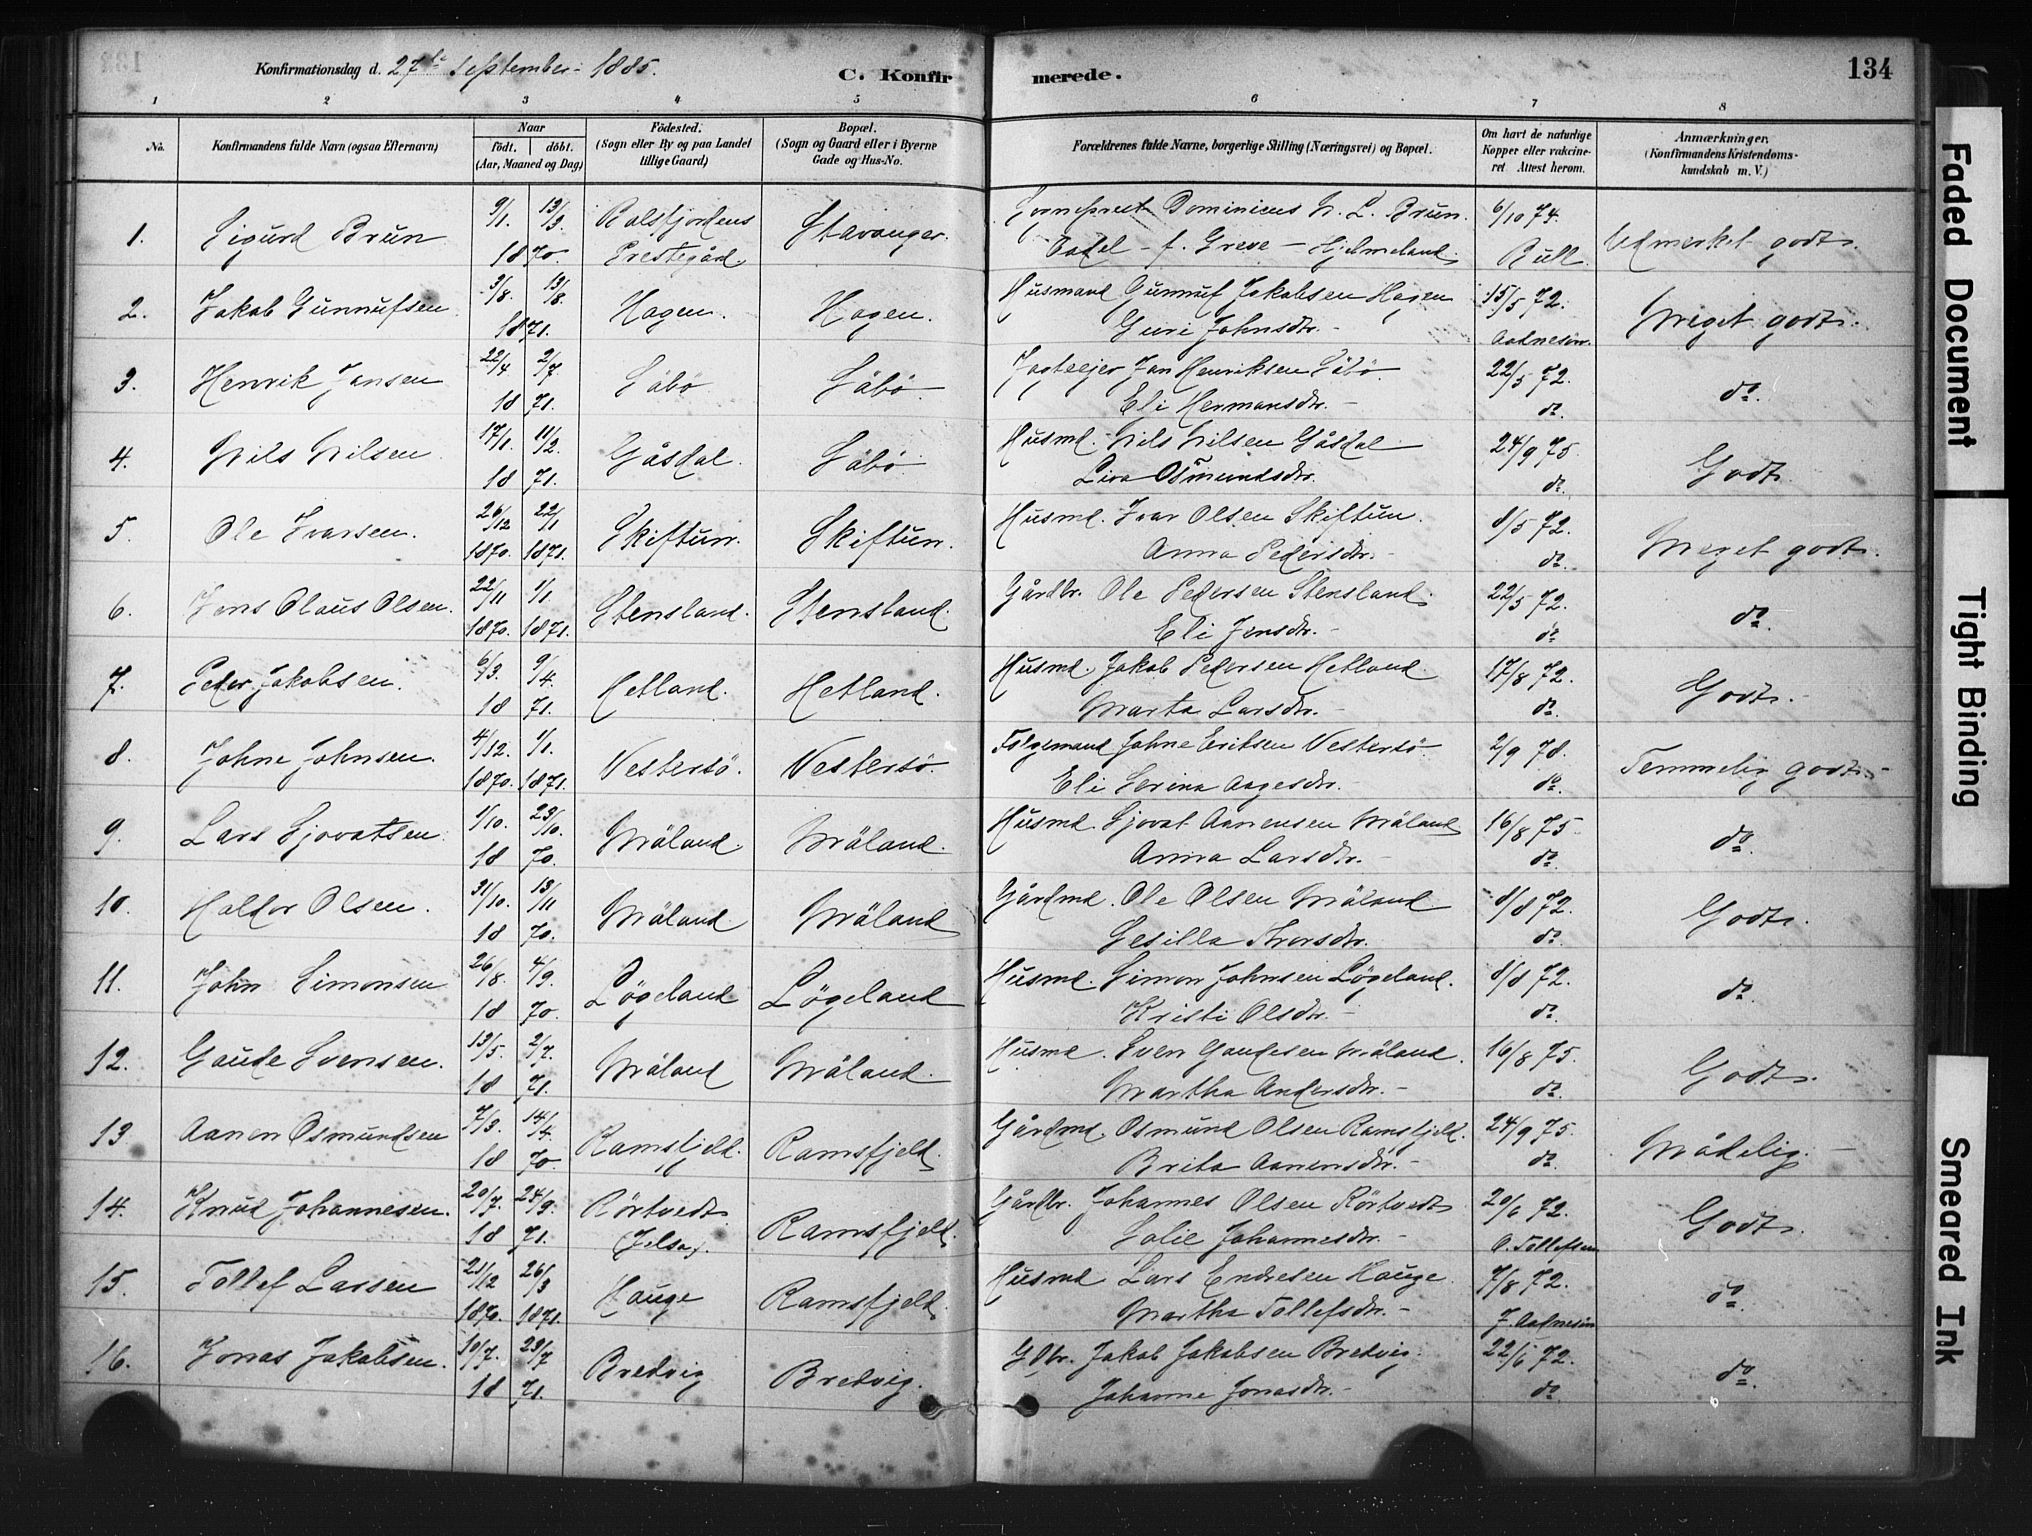 Konfirmationsdag d. 27de September 1885.
C. Konfirmerede.
134
1 2 3 4 5 6 7 8
No.
Konfirmandens fulde Navn (ogsaa Efternavn)
Naar
födt. döbt.
(Aar, Maaned og Dag)
Födested.
(Sogn eller By og paa Landet
tillige Gaard)
Bopæl.
(Sogn og Gaard eller i Byerne
Gade og Hus-No.
Forældrenes fulde Navne, borgerlige Stilling (Næringsvei) og Bopæl.
Om havt de naturlige
Kopper eller vakcine-
ret Attest herom.
Anmærkninger.
(Konfirmandens Kristendoms-
kundskab m. V.)
1. Sigurd Brun 9/1 13/3 Balsfjordens Stavanger. Sogneprest Dominicus Brun. 6/10 74. Udmerket godt.
1870. Prestegård. f. Greve – Hjelmeland. Bull.
2. Jakob Gunnufsen 3/8. 13/8. Hagen. Hagen. Husmand Gunnuf Jakobsen Hagen 15/5 72. Meget godt.
1871. Guri Johnsdtr. –
3. Henrik Jansen 22/4 2/7. Säbö Säbö Jagteejer Jan Henriksen Säbö 22/5 72. do.
18 71. Eli Hermansdtr. – do.
4. Nils Nilsen 17/1. 11/2. Gåsdal. Säbö Husmd. Nils Nilsen Gåsdal 24/9 75 Godt.
18 71. Liva Osmundsdtr. do.
5. Ole Ivarsen. 26/12 22/1 Skiftun. Skiftun. Husmd. Ivar Olsen Skiftun. 8/5 72. Meget godt.
1870. 1871. Anna Pedersdtr. – do.
6. Jens Olaus Olsen. 22/11 1/1. Stensland. Stensland. Gårdbr. Ole Pedersen Stensland. 22/5 72. do.
1870. 1871. Eli Jensdtr. – do
7. Peder Jakobsen. 6/3. 9/4. Hetland. Hetland. Husmd. Jakob Pedersen Hetland. 17/8 72. Godt.
18 71. Marta Larsdtr. – do.
8. Johne Johnsen. 4/12. 1/1. Vestersö. Vestersö. Folgemand Johne Eriksen Vestersö 2/9 78. Temmelig godt. –
1870. 1871. Eli Serina Aagesdtr. do.
9. Lars Sjovatsen. 1/10. 23/10. Mäland. Mäland. Husmd. Sjovat Aanensen Mäland 16/8 75. do.
18 70. Anna Larsdtr. – do.
10. Haldor Olsen. 31/10. 13/11 Mäland. Mäland Gårdmd. Ole Olsen Mäland 8/8 72. Godt.
18 70. Gesilla Thorsdtr. do.
11. John Simonsen 26/8. 4/9. Løgeland Løgeland Husmd. Simon Johnsen Løgeland. 8/8 72. do.
18 70. Kristi Olsdtr. – do.
12. Gaude Svensen. 13/5. 2/7. Mäland Mäland. Husmd. Sven Gaudesen Mäland. 16/8 75. Godt.
18 71. Martha Andersdtr. – do.
13. Aanen Osmundsen 7/3. 14/4. Ramsfjeld. Ramsfjeld. Gårdmd. Osmund Olsen Ramsfjeld. 24/9 75. Mådelig. –
18 70. Brita Aanensdtr. – do.
14. Knud Johannesen. 20/7. 24/9. Rörtvedt Ramsfjeld. Gårdbr. Johannes Olsen Rörtvedt 20/6 72. Godt.
18 71. (Jelsa). Johannesdtr. – O. Tollefsen
15. Tollef Larsen 21/12 26/3 Hauge Ramsfjeld. Husmd Lars Endresen Hauge. 7/8 72. do.
1870. 1871. Martha Tollefsdtr. –
16. Jonas Jakobsen. 10/7. 23/7 Bredvig Bredvig. Gdbr. Jakob Jakobsen Bredvig. 22/6 72. do.
18 71. Johanne Jonasdtr. – do
Faded Document
Tight Binding
Smeared Ink